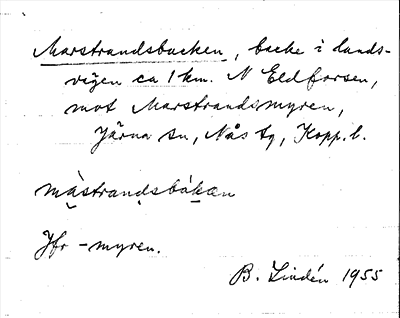 Marstrandsbacken, backe i lands-
vägen ca 1 km. N Eldforsen,
mot Marstrandsmyren,
Järna sn, Nås tg, Kopp. l.
màstrandsbákan
Jfr -myren.
B. Lindén 1955